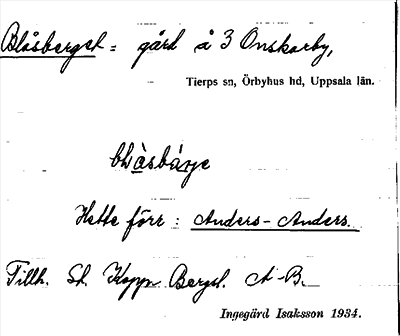 Blåsberget = gård å 3 Onskarby,
Tierps sn, Örbyhus hd, Uppsala län.
blåsbärje
Hette förr: Anders-Anders.
Tillh. St. Kopp. Bergsl. A-B.
Ingegärd Isaksson 1934.